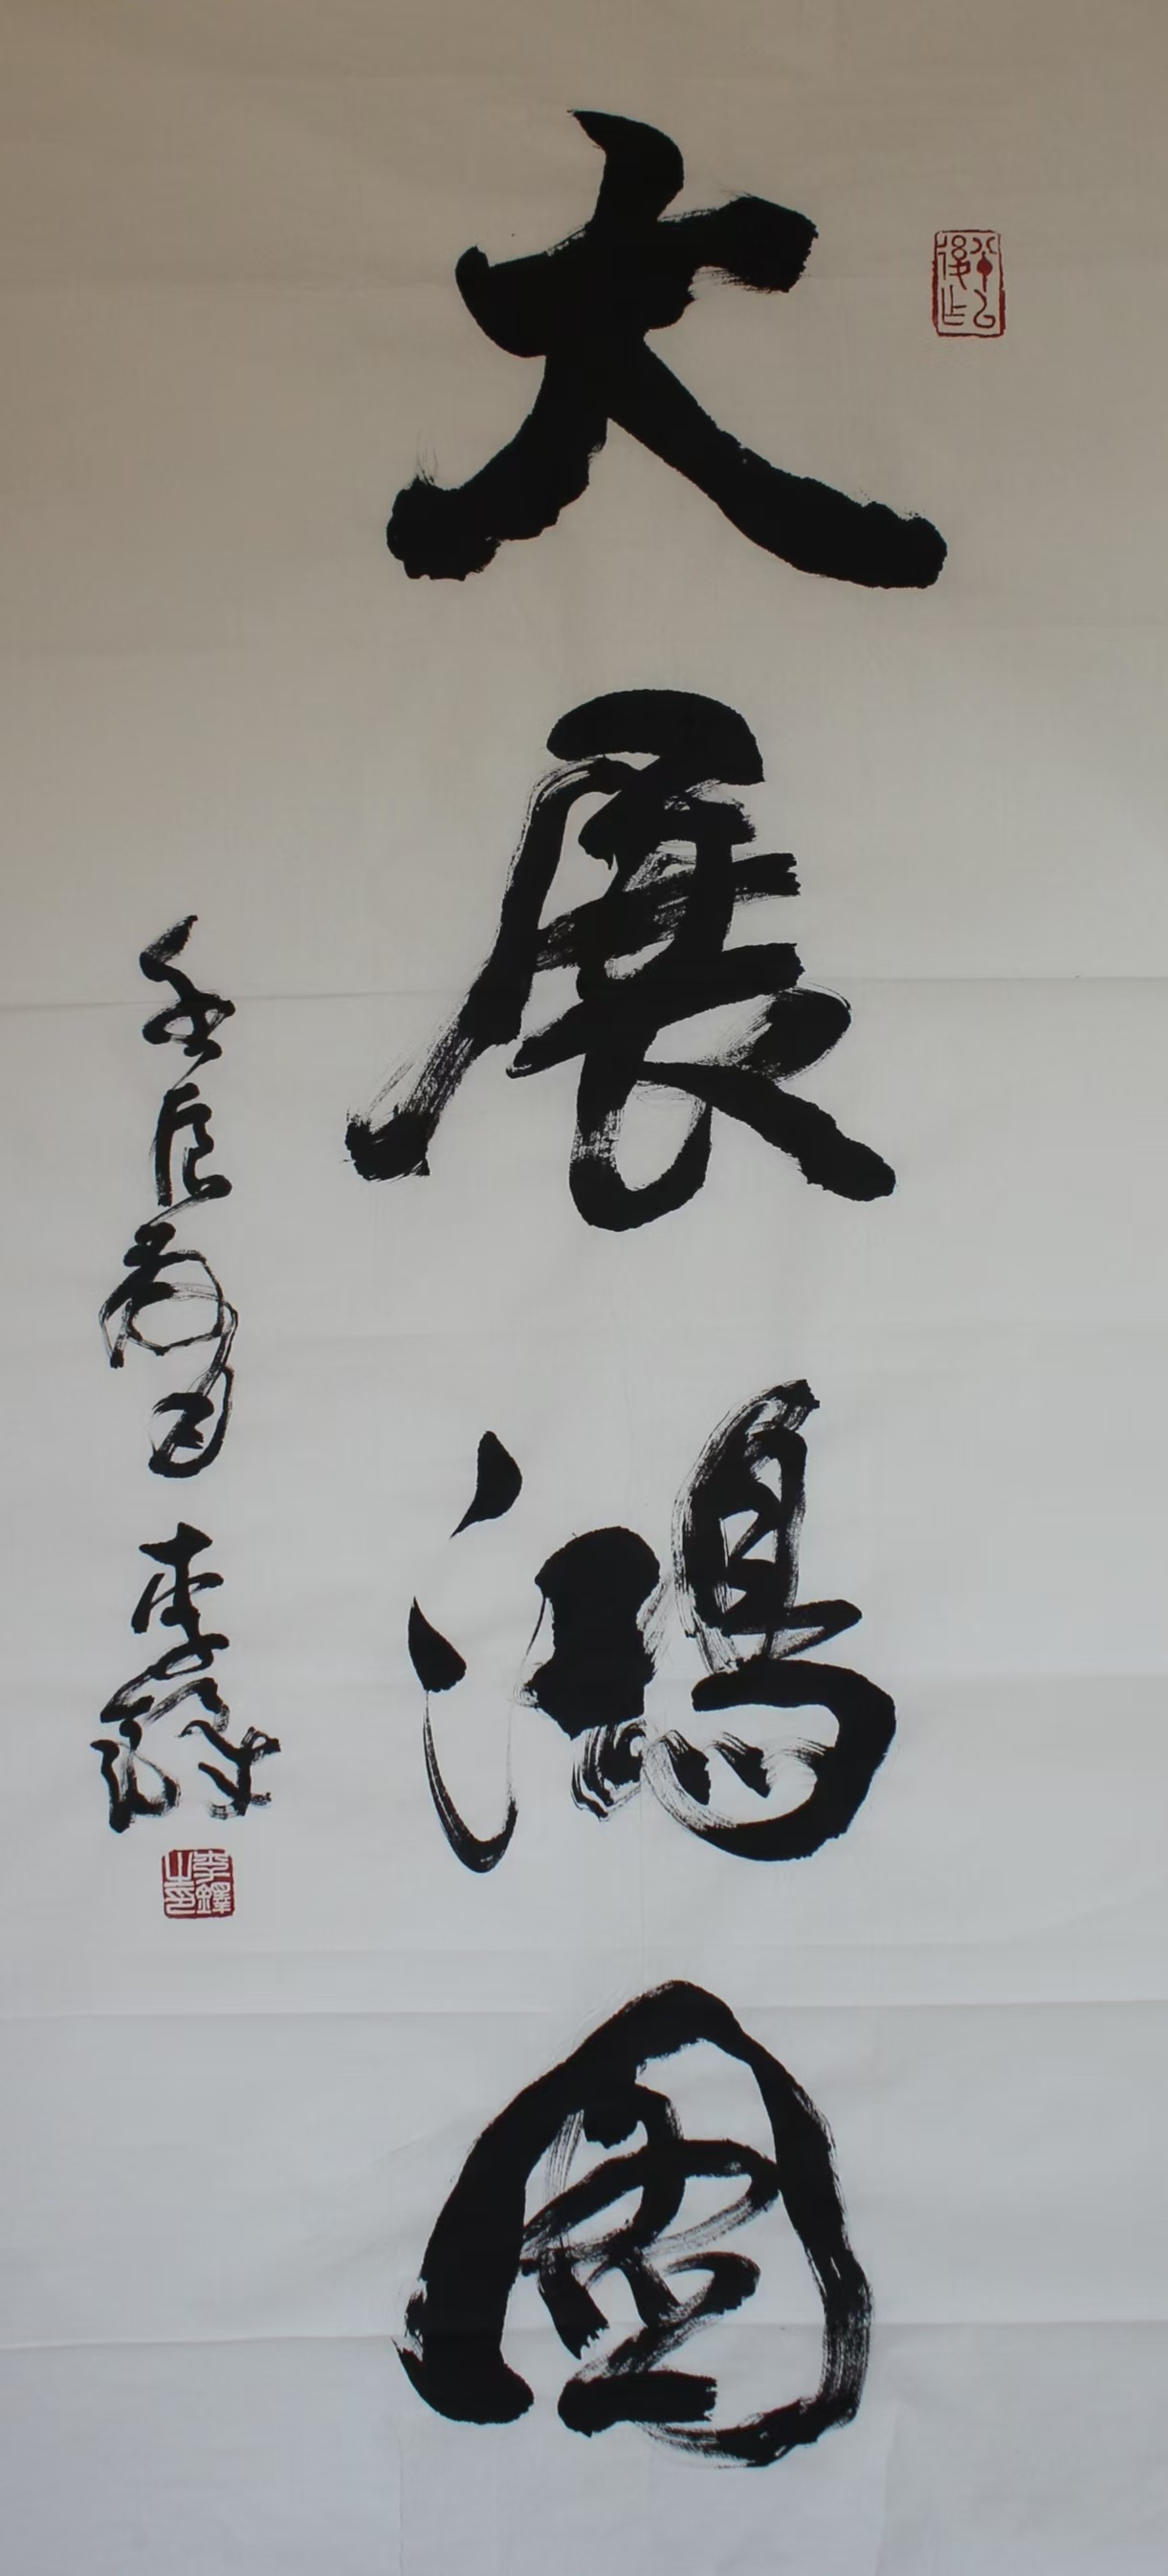 大展鴻圖
壬辰月 李鐸
李鐸之印